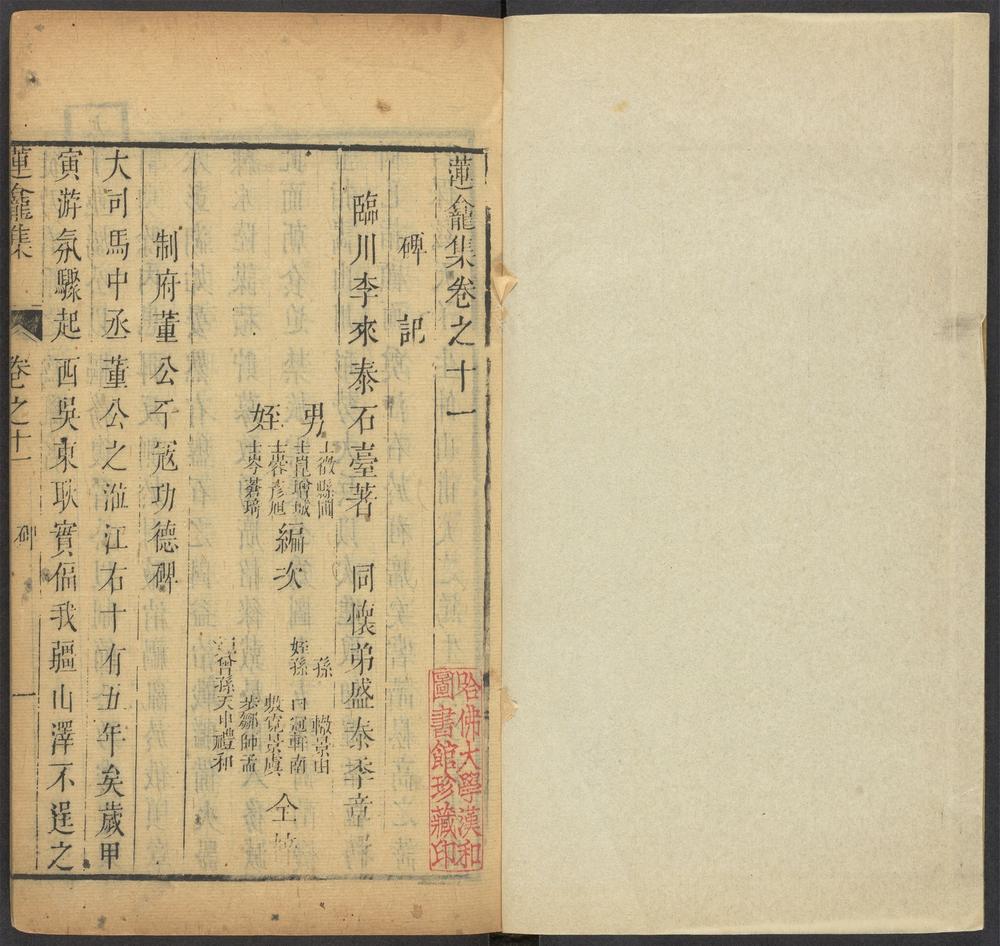 蓮龕集卷之十一
碑記
臨川李來泰石臺著 同懷弟盛泰季章
男 士徵縣圃
士崑增城
姪 士蓉彥旭
士岑蒼瑤
編次
孫 景由
姪孫 南
敷寬景虞
恭鄒師孟
曾孫天申禮和
仝
制府董公平寇功德碑
大司馬中丞董公之涖江右十有五年矣歲甲
寅游氛驟起西吳東耿實偪我疆山澤不逞之
蓮龕集 卷之十一 碑 一
哈佛大學漢和
圖書館珍藏印